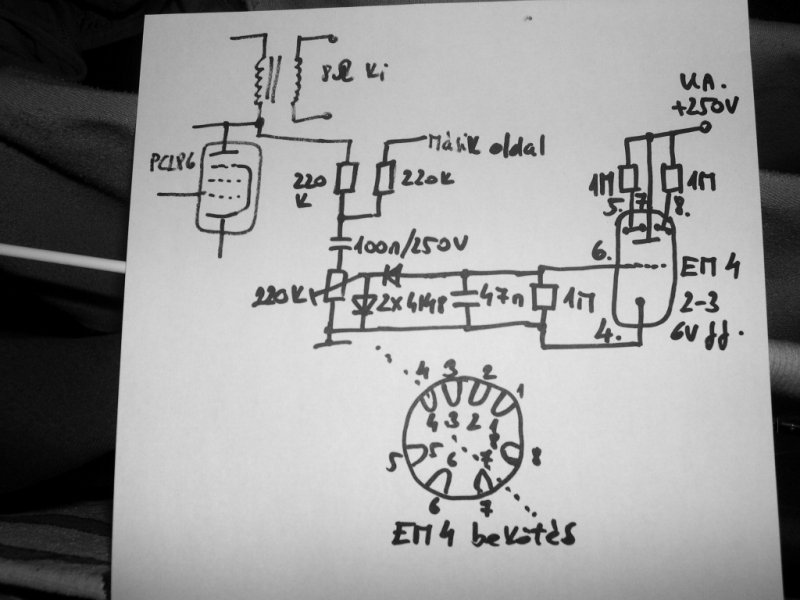 8Ω Ki
U.A.
+250V
PCL86
Másik oldal
220
K
220K
1M
1M
5.
7.
8.
100n/250V
6.
EM 4
220K
2x4148
47n
1M
2-3
6V ff.
4.
4
3
2
1
4
3
2
1
5
5
6
7
8
8
6
7
EM 4 bekötés